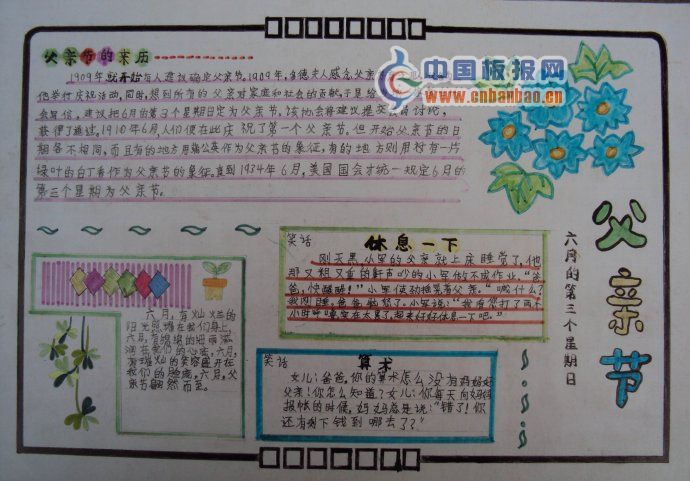 父亲节的来历
1909年就开始有人建议确定父亲节。1909年,多德夫人感念父亲
他举行庆祝活动,同时,想到所有的父亲对家庭和社会的贡献,于是给
教写信,建议把6月的第3个星期日定为父亲节。该协会将建议提交会员讨论,
获得了通过。1910年6月,人们便在此庆祝了第一个父亲节。但开始父亲节的日
期各不相同,而且有的地方用蒲公英作为父亲节的象征,有的地方则用衬有一片
绿叶的白丁香作为父亲节的象征。直到1934年6月,美国国会才统一规定6月的
第三个星期为父亲节。
中国板报网
www.cnbanbao.cn
父亲节
六月的第三个星期日
笑话 休息一下
刚天黑,小军的父亲就上床睡觉了,他
那又粗又重的鼾声吵的小军做不成作业。“爸
爸,快醒醒!”小军使劲摇晃着父亲。“喊什么?
我刚睡,爸爸恼怒了。小军说:“我看您打了两个
小时呼噜实在太累了,起来好好休息一下吧。”
六月,有灿烂的
阳光照耀在我们身上,
六月,有绵绵的细雨滋
润在我们的心底,六月,
有璀璨的笑容盛开在
我们的脸庞,六月,父
亲节翩然而至。
笑话 算术
女儿:爸爸,你的算术怎么没有妈妈好
父亲:你怎么知道?女儿:你每天向妈妈
报帐的时候,妈妈总是说:“错了!你
还有剩下钱到哪去了?”